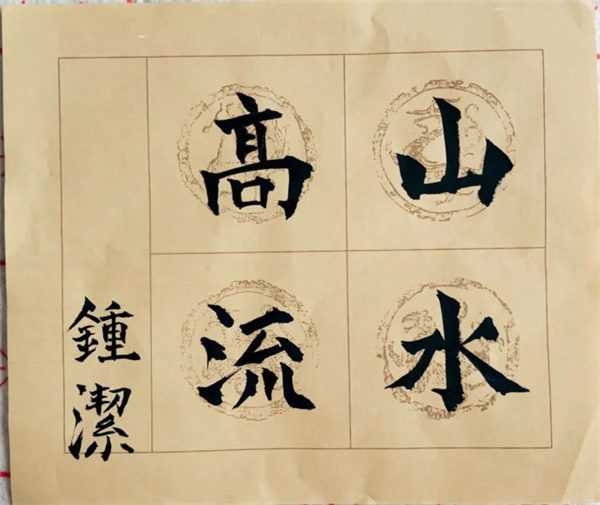 高山
流水
鍾潔